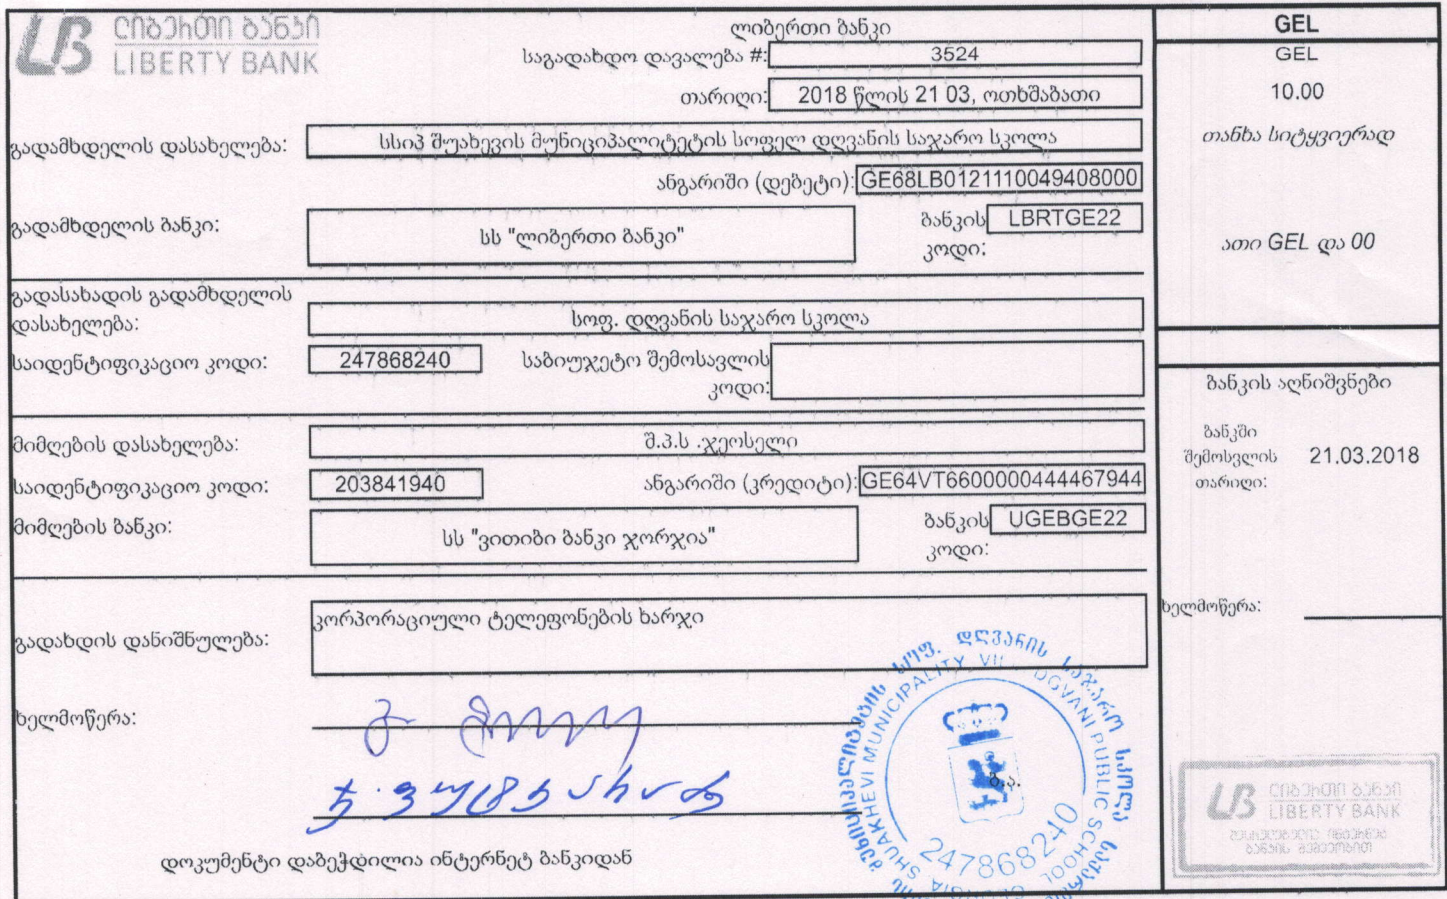 ლიბერთი ბანკი
LIBERTY BANK
ლიბერთი ბანკი
საგადახდო დავალება #: 3524
თარიღი: 2018 წლის 21 03, ოთხშაბათი
გადამხდელის დასახელება: სსიპ შუახევის მუნიციპალიტეტის სოფელ დღვანის საჯარო სკოლა
ანგარიში (დებეტი): GE68LB0121110049408000
გადამხდელის ბანკი: სს "ლიბერთი ბანკი" ბანკის კოდი: LBRTGE22
გადასახადის გადამხდელის
დასახელება: სოფ. დღვანის საჯარო სკოლა
საიდენტიფიკაციო კოდი: 247868240 საბიუჯეტო შემოსავლის
კოდი:
მიმღების დასახელება: შ.პ.ს .ჯეოსელი
საიდენტიფიკაციო კოდი: 203841940 ანგარიში (კრედიტი): GE64VT6600000444467944
მიმღების ბანკი: სს "ვითიბი ბანკი ჯორჯია" ბანკის კოდი: UGEBGE22
გადახდის დანიშნულება: კორპორაციული ტელეფონების ხარჯი
ხელმოწერა:
ბ.ა.
დოკუმენტი დაბეჭდილია ინტერნეტ ბანკიდან
GEL
GEL
10.00
თანხა სიტყვიერად
ათი GEL და 00
ბანკის აღნიშვნები
ბანკში
შემოსვლის 21.03.2018
თარიღი:
ხელმოწერა:
ლიბერთი ბანკი
LIBERTY BANK
შესრულებულია ინტერნეტ
ბანკის მეშვეობით
სოფ. დღვანის საჯარო სკოლა
SHUAKHEVI MUNICIPALITY DGVANI PUBLIC SCHOOL
247868240